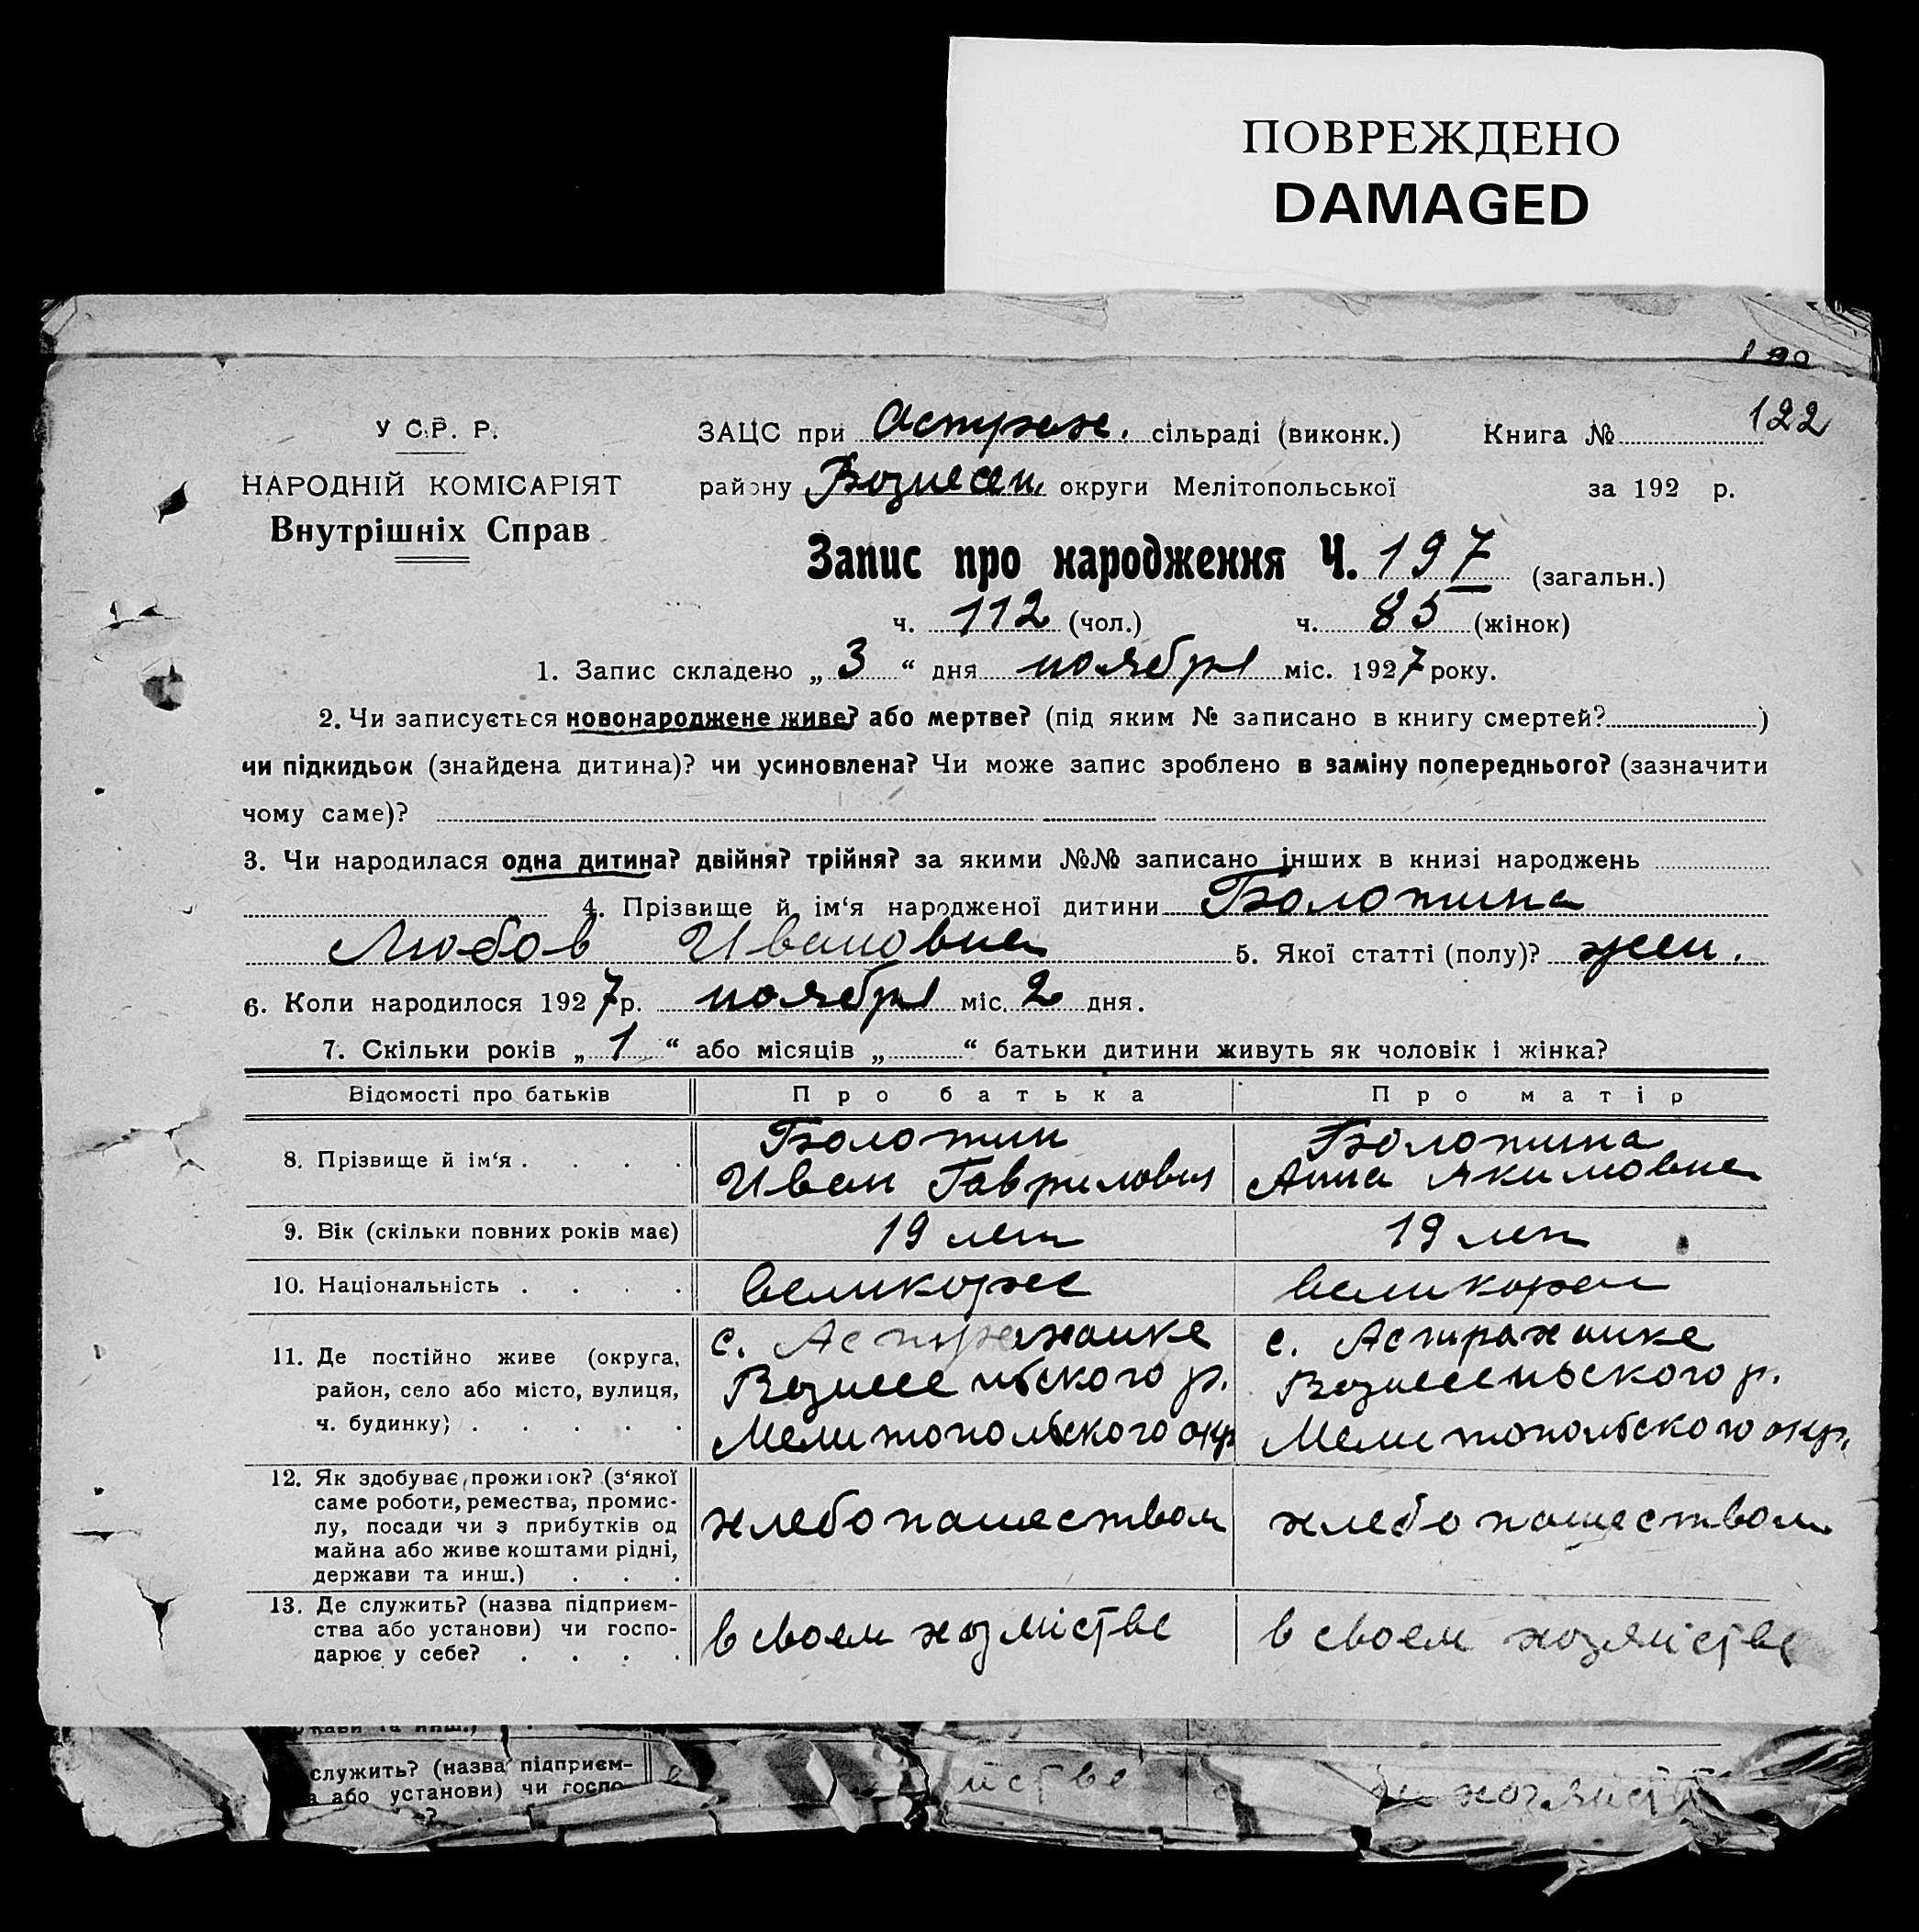 ПОВРЕЖДЕНО
DAMAGED
122
У С.Р. Р.
НАРОДНІЙ КОМІСАРІЯТ
Внутрішніх Справ
ЗАЦС при Астрахан. сільраді (виконк.) Книга №
району Вознесен. округи Мелітопольської за 192 р.
Запис про народження Ч. 197 (загальн.)
ч. 112 (чол.) ч. 85 (жінок)
1. Запис складено „ 3 “ дня ноября міс. 1927 року.
2. Чи записується новонароджене живе? або мертве? (під яким № записано в книгу смертей? )
чи підкидьок (знайдена дитина)? чи усиновлена? Чи може запис зроблено в заміну попереднього? (зазначити
чому саме)?
3. Чи народилася одна дитина? двійня? трійня? за якими №№ записано інших в книзі народжень
4. Прізвище й ім‘я народженої дитини Болотина
Любов Ивановна 5. Якої статті (полу)? жен.
6. Коли народилося 1927 р. ноября міс. 2 дня.
7. Скільки років „ 1 “ або місяців „ “ батьки дитини живуть як чоловік і жінка?
Відомості про батьків Про батька Про матір
8. Прізвище й ім‘я . . . . Болотин Иван Гаврилович Болотина Анна Акимовна
9. Вік (скільки повних років має) 19 лет 19 лет
10. Національність . . . . великорос великорос
11. Де постійно живе (округа, с. Астраханке с. Астраханке
район, село або місто, вулиця, Вознесеньского р. Вознесеньского р.
ч. будинку) . . . . . Мелитопольского окр. Мелитопольского окр.
12. Як здобуває прожиток? (з‘якої
саме роботи, ремества, промис-
лу, посади чи з прибутків од хлебопашеством хлебопашеством
майна або живе коштами рідні,
держави та инш.) . . .
13. Де служить? (назва підприєм-
ства або установи) чи госпо- в своем хозяйстве в своем хозяйстве
дарює у себе? . . . .
жави та инш.)
служить? (назва підприєм-
а або установи) чи госпо
йстве хозяйств